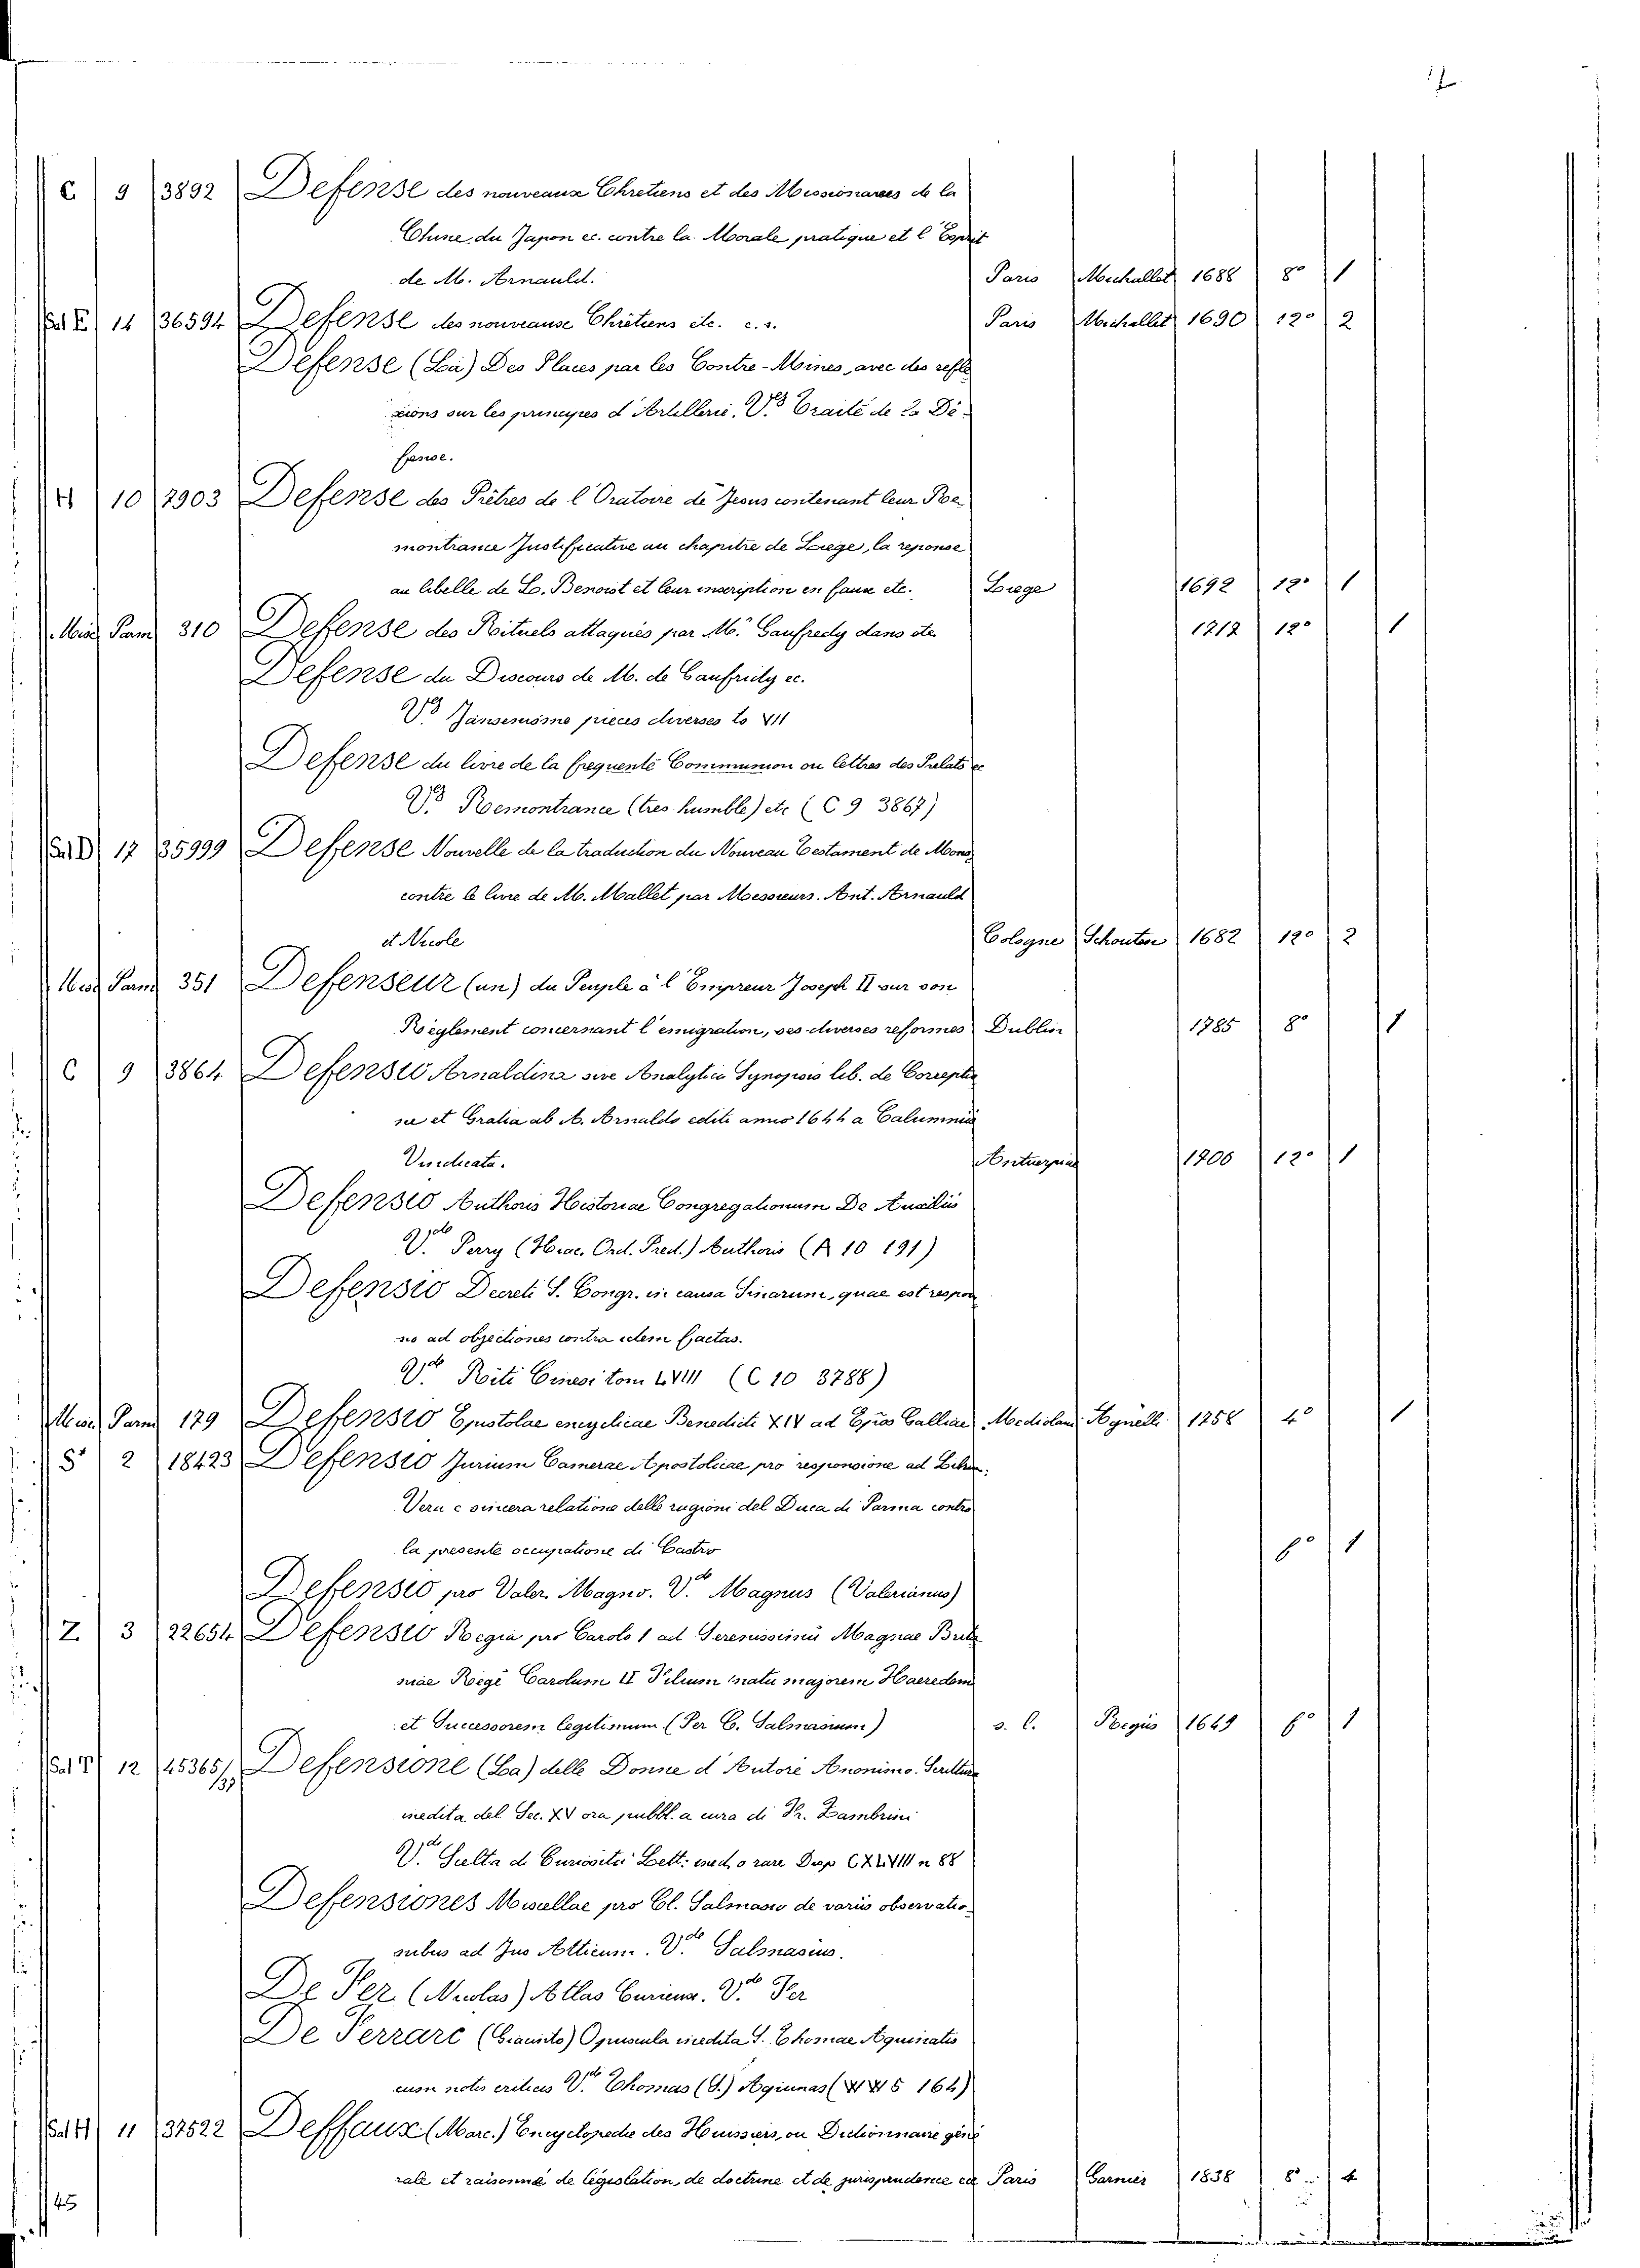 C 9 3892 Defense des nouveaux Chretiens et des Missionaires de la
Chine, du Japon ec. contre la Morale pratique et l'Esprit
de M. Arnauld. Paris Michallet 1688 8° 1
Sal E 14 36594 Defense des nouveause Chrétiens etc. c. s. Paris Michallet 1690 12° 2
Defense (La) Des Places par les Contre-Moines, avec des refle
xions sur les principes d'Artillerie. V.° Traité de La Dé-
fense.
H 10 7903 Defense des Prêtres de l'Oratoire de Jesus contenant leur Re-
montrance Justificative au chapitre de Liege, la reponse
au libelle de L. Benoist et leur inscription en faux etc. Liege 1692 12° 1
Misc Parm 310 Defense des Rituels attaqués par M.r Gaufredy dans etc 1712 12° 1
Defense du Discours de M. de Gaufridy ec.
V.° Jansenisme pieces diverses to VII
Defense du livre de la frequente Communion ou lettres des Prelats ec
V.° Remontrance (tres humble) etc (C 9 3867)
Sal D 17 35999 Defense Nouvelle de la traduction du Nouveau Testament de Mons
contre le livre de M. Mallet par Messieurs. Ant. Arnauld
et Nicole Cologne Schouten 1682 12° 2
Misc Parm 351 Defenseur (un) du Peuple à l'Empreur Joseph II sur son
Réglement concernant l'emigration, ses diverses reformes Dublin 1785 8° 1
C 9 3864 Defensio Arnaldina sive Analytica Synopsis lib. de Correptio
ne et Gratia ab A. Arnaldo editi anno 1644 a Calumniis
Vindicata. Antuerpiae 1700 12° 1
Defensio Authoris Historiae Congregationum De Auxiliis
V.do Perry (Hiac. Ord. Pred.) Authoris (A 10 191)
Defensio Decreti S. Congr. in causa Sinarum, quae est respon
sio ad objectiones contra idem factas.
V.do Riti Cinesi tom LVIII (C 10 3788)
Misc Parm 179 Defensio Epistolae encyclicae Benedicti XIV ad Epios Galliae Mediolani Agnelli 1758 4° 1
S 2 18423 Defensio Jurium Camerae Apostolicae pro responsione ad Libru
Vera e sincera relatione delle ragioni del Duca di Parma contro
la presente occupatione di Castro 6° 1
Defensio pro Valer. Magno. V.do Magnus (Valerianus)
Z 3 22654 Defensio Regia pro Carolo 1 ad Serenissimū Magnae Brita
niae Regē Carolum II Filium natu majorem Haeredem
et Successorem legitimum (Per C. Salmasium) s. l. Regiis 1649 6° 1
Sal T 12 45365/137 Defensione (La) delle Donne d'Autore Anonimo. Scrittura
inedita del Sec. XV ora pubbl. a cura di Fr. Zambrini
V.do Scelta di Curiosità Lett: ined. o rare Disp CXLVIII n 88
Defensiones Miscellae pro Cl. Salmasio de variis observatio-
nibus ad Jus Atticum. V.do Salmasius.
De Fer. (Nicolas) Atlas Curieux. V.do Fer
De Ferrare (Giacinto) Opuscula inedita S. Thomae Aquinatis
cum notis criticis V.do Thomas (S.) Aquinas 5 164)
Sal H 11 37522 Deffaux (Marc.) Encyclopedie des Huissiers, ou Dictionnaire géné
rale et raisonné de législation, de doctrine et de jurisprudence etc Paris Garnier 1838 8° 4
45